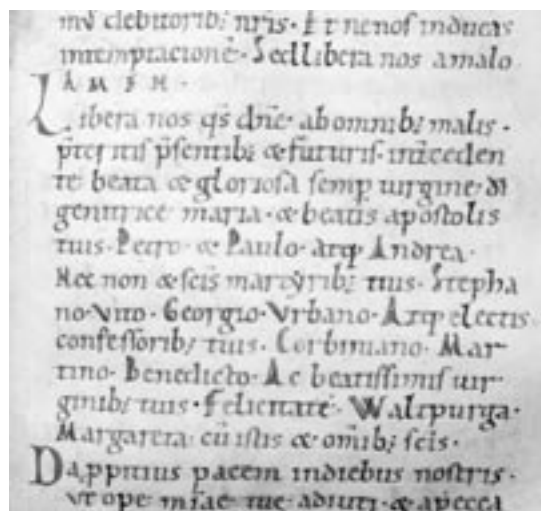 mus debitorib; nr̄is. Et ne nos inducas
intemptacionē. Sed libera nos amalo
AMEN.
Libera nos qs̄ dn̄e ab omnib; malis.
p̄teritis p̄sentib; & futuris. int̄ceden
te beata & gloriosa semp uirgine dī
genitrice maria. & beatis apostolis
tuis. Petro. & Paulo. atq; Andrea.
Nec non & sc̄is martyrib; tuis. Stepha
no. Vito. Georgio. Vrbano. Atq; electis
confessorib; tuis. Corbiniano. Mar
tino. Benedicto. Ac beatissimis uir
ginib; tuis. Felicitatē. Waltpurga.
Margareta. cū istis & om̄ib; sc̄is.
Da ppitius pacem indiebus nostris.
ut ope mīae tue adiuti. &